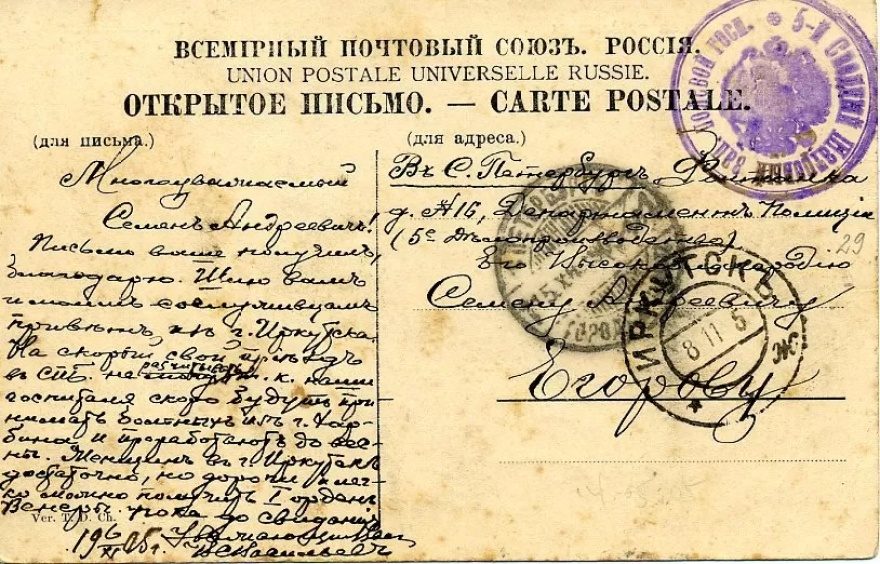 ВСЕМІРНЫЙ ПОЧТОВЫЙ СОЮЗЪ. РОССІЯ.
UNION POSTALE UNIVERSELLE RUSSIE.
ОТКРЫТОЕ ПИСЬМО. — CARTE POSTALE.
(для письма.)
Многоуважаемый
Семенъ Андреевичъ!
Письмо ваше получилъ,
благодарю. Шлю вамъ
и моимъ сослуживцамъ
привѣтъ изъ г. Иркутска.
На скорый свой пріѣздъ
въ СПБ. не разчитываю т. к. наши
госпиталя скоро будутъ при-
нимать больныхъ изъ г. Хар-
бина и проработаютъ до вес-
ны. Женщинъ въ г. Иркутскѣ
достаточно, но дороги и лег-
ко можно получить I орденъ
Венеры. Пока до свиданія
Уважающій Васъ
В. Васильевъ
19 6/XI 05 г.
Ver. T. D. Ch.
(для адреса.)
Въ С. Петербургъ Фонтанка
д. №16, Департаментъ Полиціи
(5е Дѣлопроизводство)
Его Высокоблагородію
Семену Андреевичу
Егорову
29
5-Й СВОДНЫЙ ПОЛЕВОЙ ГОСП.
ИРКУТСКЪ
8 11 5